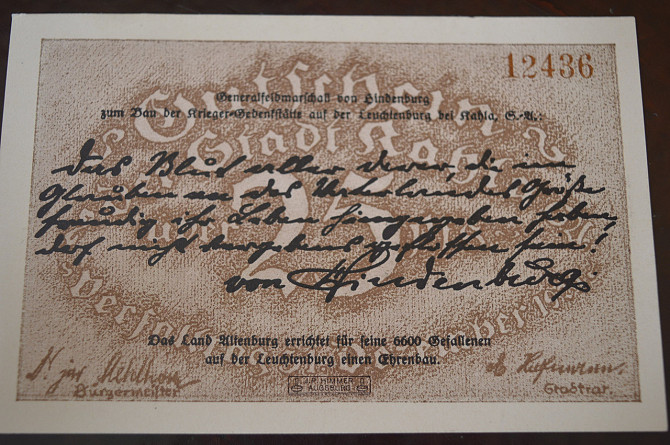 12436
Gutschein
Generalfeldmarschall von Hindenburg
zum Bau der Krieger-Gedenkstätte auf der Leuchtenburg bei Kahla, S.-A.:
Stadt Kahla
Das Blut aller derer, die im
Glauben an des Vaterlandes Größe
freudig ihr Leben hingegeben haben,
darf nicht vergebens geflossen sein!
25
von Hindenburg
Das Land Altenburg errichtet für seine 6600 Gefallenen
auf der Leuchtenburg einen Ehrenbau.
Bürgermeister
J.P. HIMMER
AUGSBURG
Stadtrat.